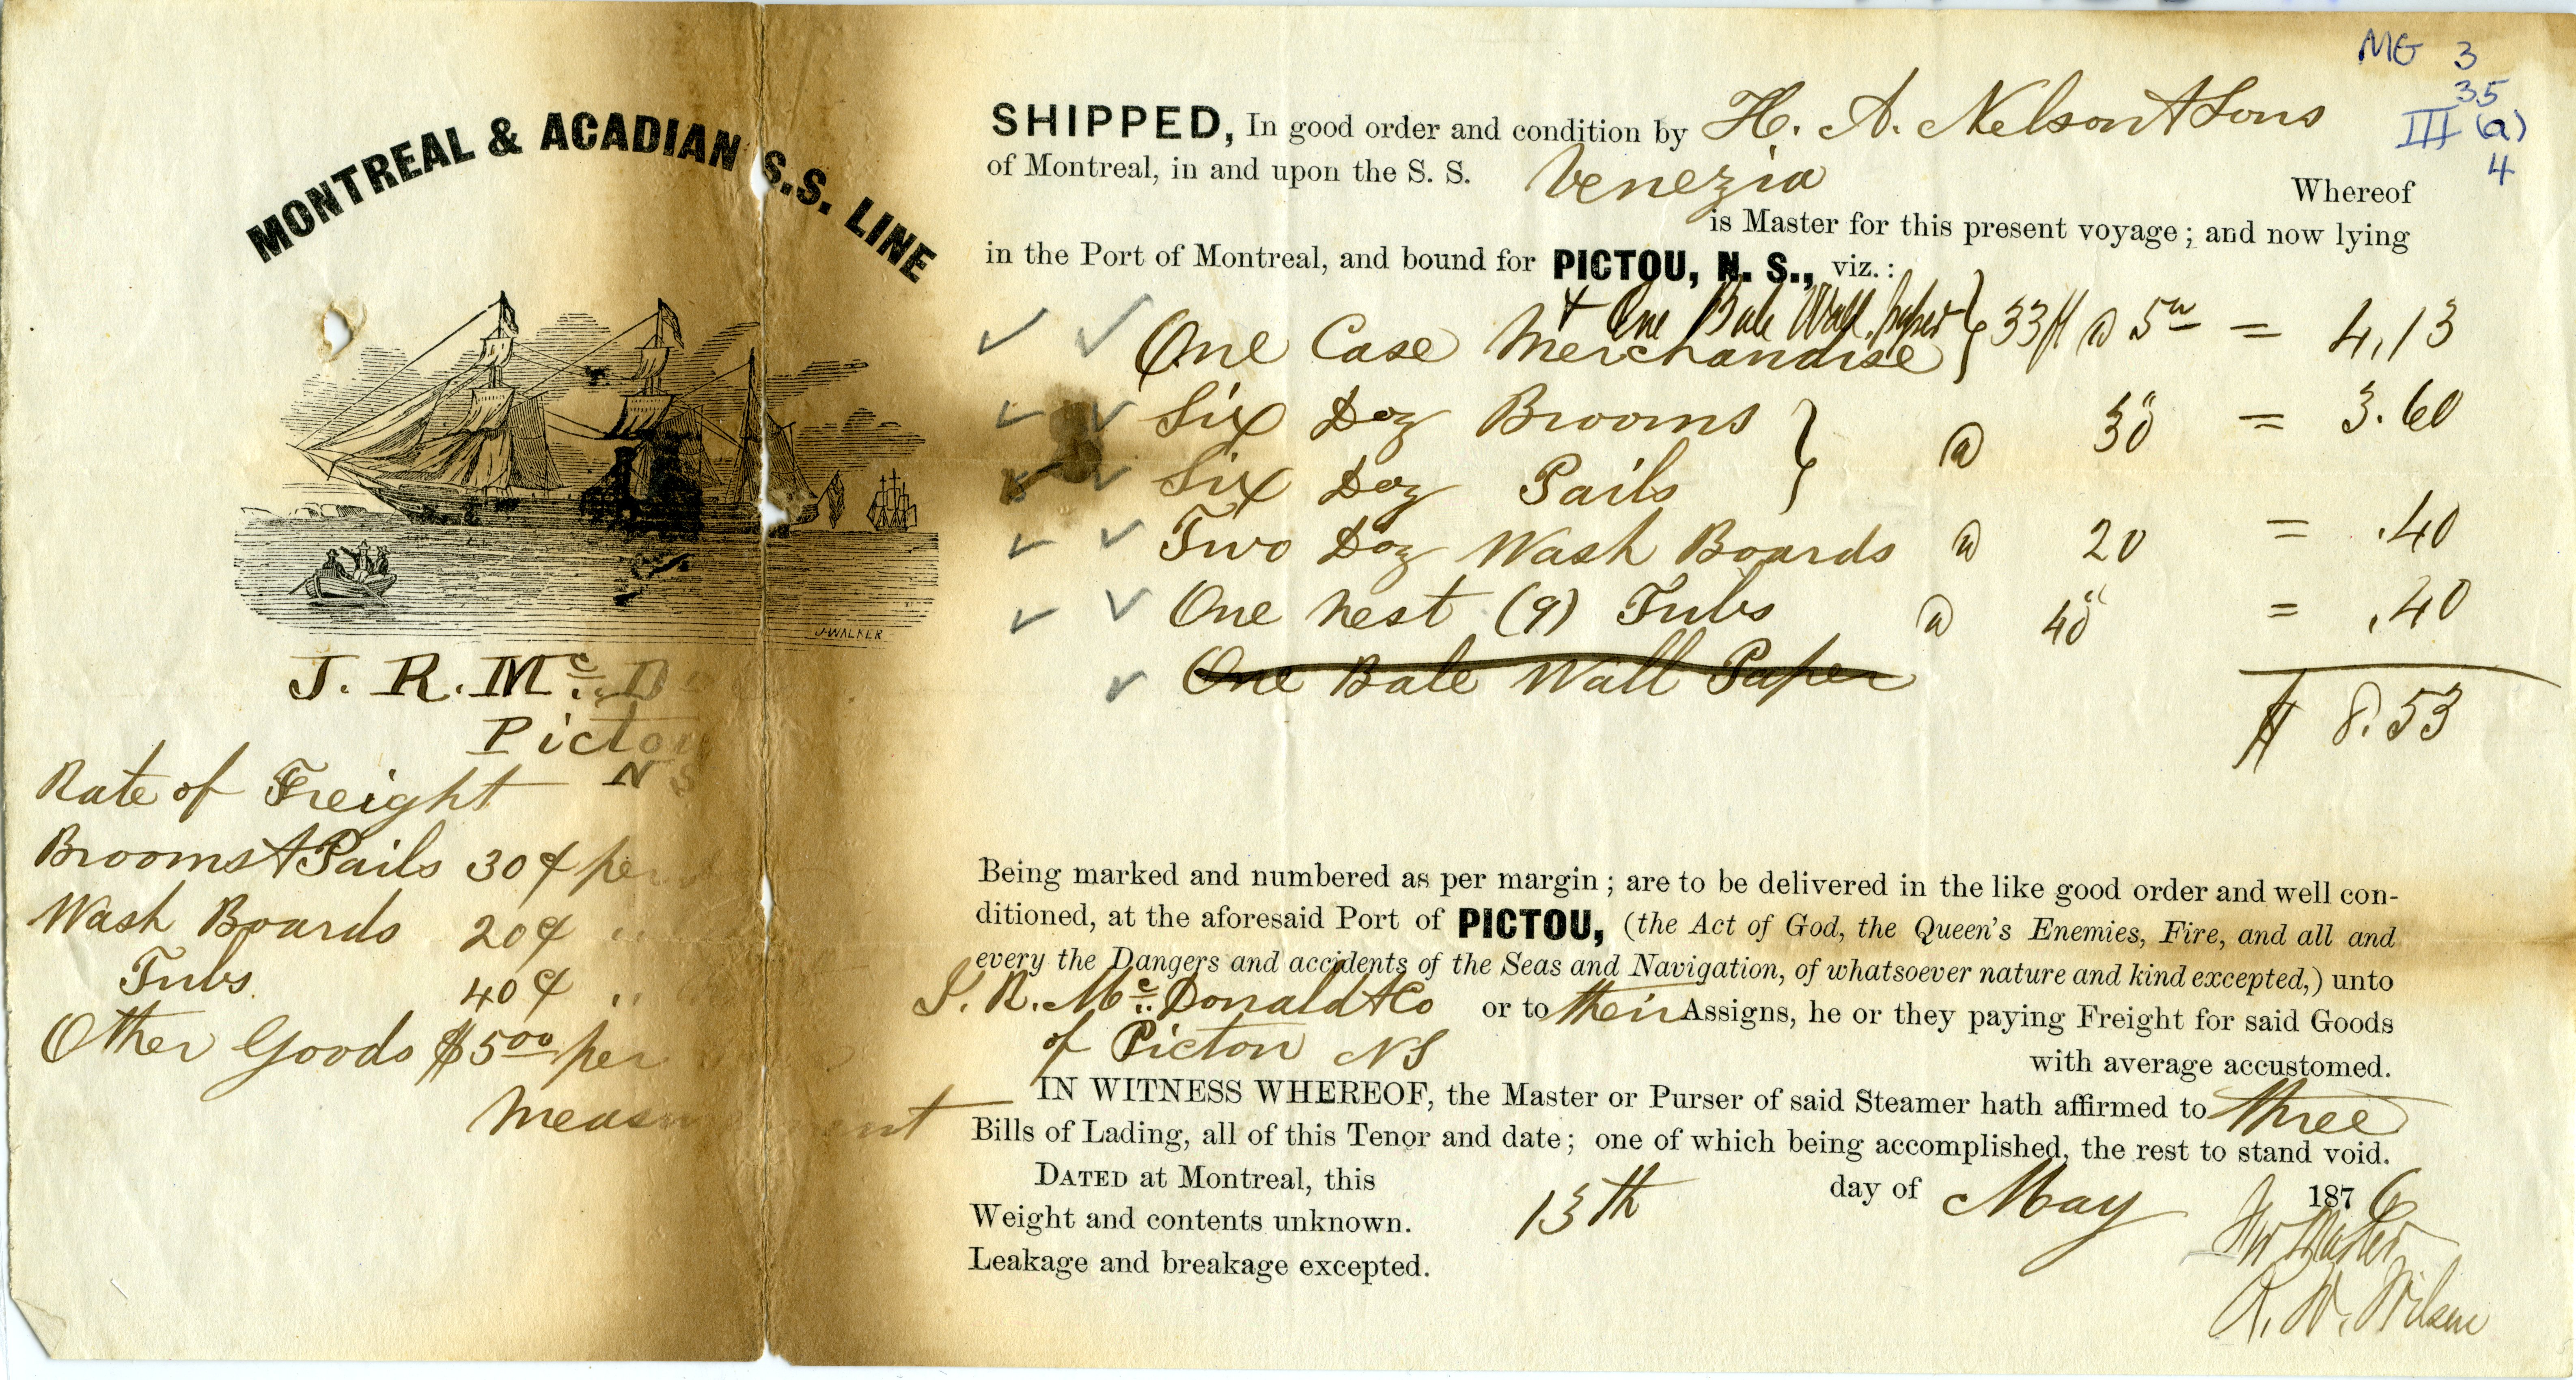 MG 3
35
III (a)
4
MONTREAL & ACADIAN S.S. LINE
J. WALKER
J. R. Mc. D
Pictou
N S
Rate of Freight
Brooms & Pails 30¢ per
Wash Boards 20¢ "
Tubs 40¢ "
Other Goods $5 00 per
Measurement
SHIPPED, In good order and condition by H. A. Nelson & Sons
of Montreal, in and upon the S. S. Venezia Whereof
is Master for this present voyage; and now lying
in the Port of Montreal, and bound for PICTOU, N. S., viz.:
& One Bale Wall paper
One Case Merchandise } 33 ft @ 5 00 = 4.13
Six Doz Brooms
Six Doz Pails } @ 30 = 3.60
Two Doz Wash Boards @ 20 = .40
One nest (9) Tubs @ 40 = .40
One Bale Wall Paper
$ 8.53
Being marked and numbered as per margin; are to be delivered in the like good order and well con-
ditioned, at the aforesaid Port of PICTOU, (the Act of God, the Queen's Enemies, Fire, and all and
every the Dangers and accidents of the Seas and Navigation, of whatsoever nature and kind excepted,) unto
J. R. Mc. Donald & Co or to their Assigns, he or they paying Freight for said Goods
of Pictou NS with average accustomed.
IN WITNESS WHEREOF, the Master or Purser of said Steamer hath affirmed to three
Bills of Lading, all of this Tenor and date; one of which being accomplished, the rest to stand void.
DATED at Montreal, this 13th day of May 1876
Weight and contents unknown.
Leakage and breakage excepted.
For Master
R. W. Wilson